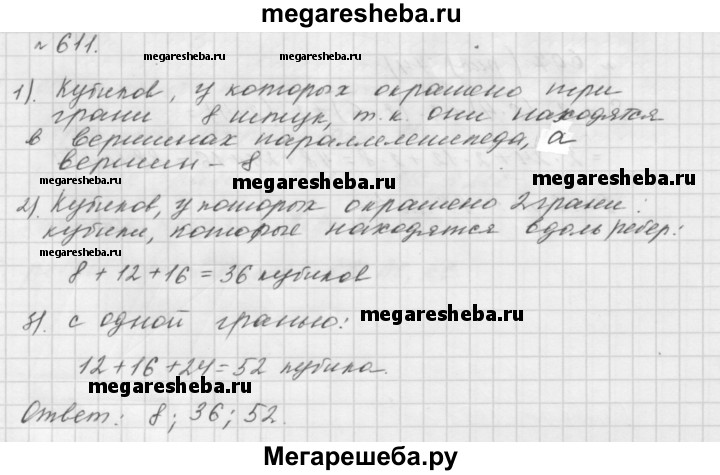 megaresheba.ru
№ 611.
megaresheba.ru megaresheba.ru
1). Кубиков, у которых окрашено три
грани 8 штук, т.к. они находятся
в вершинах параллелепипеда, а
вершин - 8
megaresheba.ru megaresheba.ru
2). Кубиков, у которых окрашено 2 грани:
кубики, которые находятся вдоль ребер:
8 + 12 + 16 = 36 кубиков
3). с одной гранью:
megaresheba.ru megaresheba.ru
12 + 16 + 24 = 52 кубика.
megaresheba.ru
Ответ: 8; 36; 52.
Мегарешеба.ру